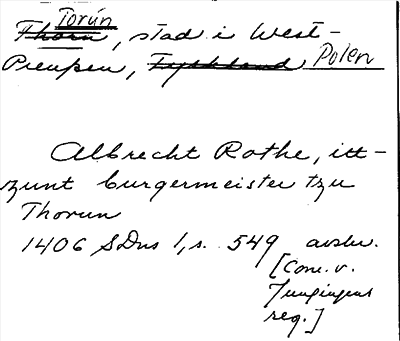 Torún
Thorn, stad i West-
Preußen, Tyskland Polen
Albrecht Rothe, itt-
zunt burgermeister tzu
Thorun
1406 SDns 1, s. 549 avskr.
[Conr. v.
Jungingens
reg.]